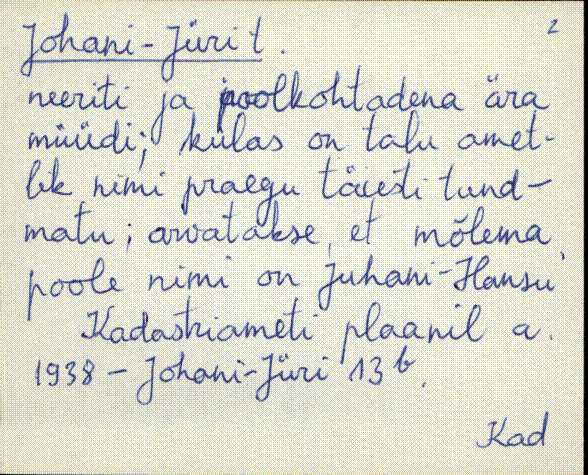 2
Johani-Jüri t.
neeriti ja poolkohtadena ära
müüdi; külas on talu amet-
lik nimi praegu täiesti tund-
matu; arvatakse, et mõlema
poole nimi on Juhani-Hansu
Kadastriameti plaanil a.
1938 – Johani-Jüri 13b.
Kad